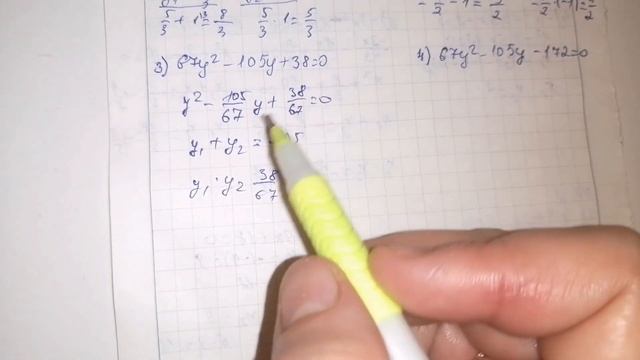 5/3 + 1 = 8/3 5/3 · 1 = 5/3
3) 67y² - 105y + 38 = 0
y² - 105/67 y + 38/67 = 0
y₁ + y₂ =
y₁ · y₂ 38/67
4) 67y² - 105y - 172 = 0